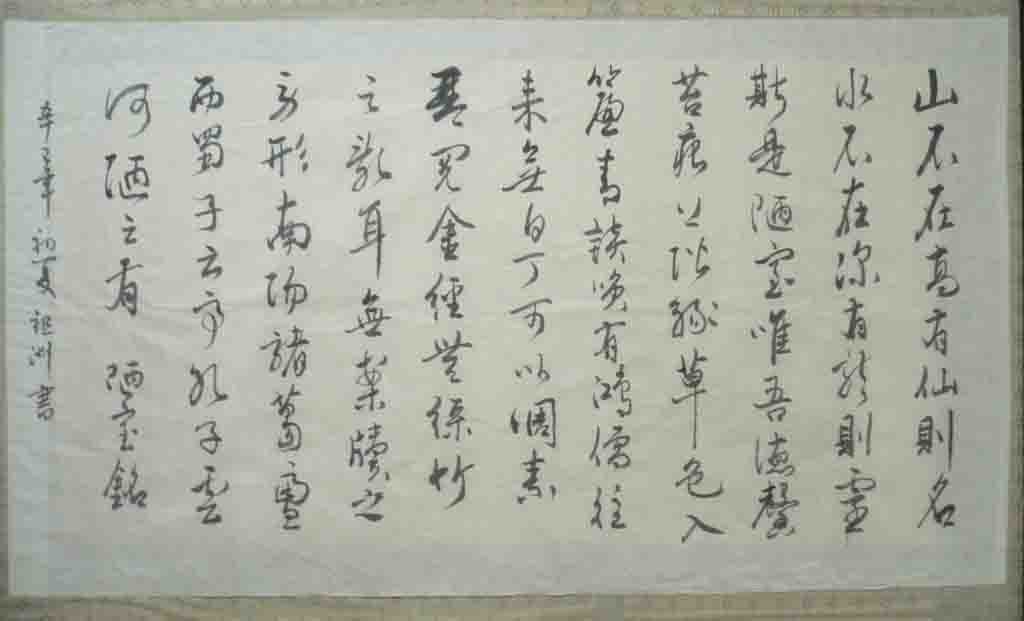 山不在高有仙則名
水不在深有龍則靈
斯是陋室唯吾德馨
苔痕上階綠草色入
簾青談咲有鴻儒往
来無白丁可以調素
琴閱金經無絲竹
之亂耳無案牘之
勞形南陽諸葛廬
西蜀子云亭孔子雲
何陋之有 陋室銘
辛 年 初夏 祖洲書